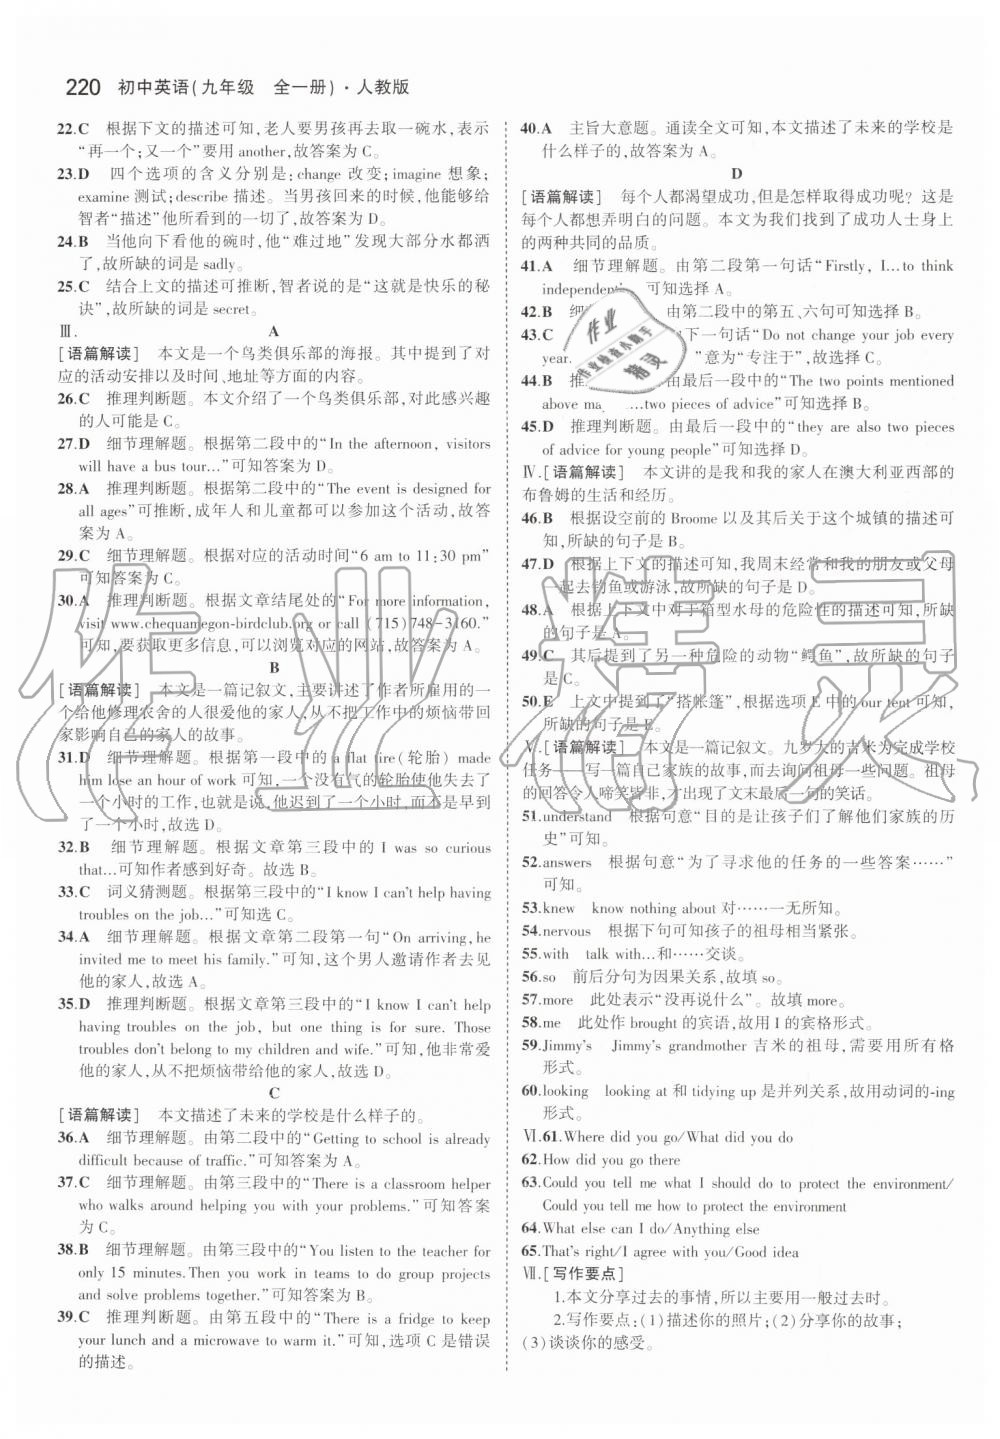 220 初中英语(九年级 全一册)·人教版
22.C 根据下文的描述可知,老人要男孩再去取一碗水,表示
“再一个;又一个”要用 another,故答案为 C。
23.D 四个选项的含义分别是:change 改变;imagine 想象;
examine 测试;describe 描述。当男孩回来的时候,他能够给
智者“描述”他所看到的一切了,故答案为 D。
24.B 当他向下看他的碗时,他“难过地”发现大部分水都洒
了,故所缺的词是 sadly。
25.C 结合上文的描述可推断,智者说的是“这就是快乐的秘
诀”,故所缺的词是 secret。
Ⅲ. A
[语篇解读] 本文是一个鸟类俱乐部的海报。其中提到了对
应的活动安排以及时间、地址等方面的内容。
26.C 推理判断题。本文介绍了一个鸟类俱乐部,对此感兴趣
的人可能是 C。
27.D 细节理解题。根据第二段中的“In the afternoon, visitors
will have a bus tour...”可知答案为 D。
28.A 推理判断题。根据第二段中的“The event is designed for
all ages”可推断,成年人和儿童都可以参加这个活动,故答
案为 A。
29.C 细节理解题。根据对应的活动时间“6 am to 11:30 pm”
可知答案为 C。
30.A 推理判断题。根据文章结尾处的“For more information,
visit www.chequamegon-birdclub.org or call (715)748-3160.”
可知,要获取更多信息,可以浏览对应的网站,故答案为 A。
B
[语篇解读] 本文是一篇记叙文,主要讲述了作者所雇用的一
个给他修理农舍的人很爱他的家人,从不把工作中的烦恼带回
家影响自己的家人的故事。
31.D 细节理解题。根据第一段中的 a flat tire(轮胎) made
him lose an hour of work 可知,一个没有气的轮胎使他失去了
一个小时的工作,也就是说,他迟到了一个小时,而不是早到
了一个小时,故选 D。
32.B 细节理解题。根据文章第三段中的 I was so curious
that...可知作者感到好奇。故选 B。
33.C 词义猜测题。根据第三段中的“I know I can't help having
troubles on the job...”可知选 C。
34.A 细节理解题。根据文章第二段第一句“On arriving, he
invited me to meet his family.”可知,这个男人邀请作者去见
他的家人,故选 A。
35.D 推理判断题。根据文章第三段中的“I know I can't help
having troubles on the job, but one thing is for sure. Those
troubles don't belong to my children and wife.”可知,他非常爱
他的家人,从不把烦恼带给他的家人,故选 D。
C
[语篇解读] 本文描述了未来的学校是什么样子的。
36.A 细节理解题。由第二段中的“Getting to school is already
difficult because of traffic.”可知答案为 A。
37.C 细节理解题。由第三段中的“There is a classroom helper
who walks around helping you with your problems.”可知答案
为 C。
38.B 细节理解题。由第三段中的“You listen to the teacher for
only 15 minutes.Then you work in teams to do group projects
and solve problems together.”可知答案为 B。
39.C 推理判断题。由第五段中的“There is a fridge to keep
your lunch and a microwave to warm it.”可知,选项 C 是错误
的描述。
40.A 主旨大意题。通读全文可知,本文描述了未来的学校是
什么样子的,故答案为 A。
D
[语篇解读] 每个人都渴望成功,但是怎样取得成功呢? 这是
每个人都想弄明白的问题。本文为我们找到了成功人士身上
的两种共同的品质。
41.A 细节理解题。由第二段第一句话“Firstly, I...to think
可知选择 A。
42.B 由第二段中的第五、六句可知选择 B。
43.C “下一句话“Do not change your job every
year. ”意为“专注于”,故选择 C。
44.B 由最后一段中的“The two points mentioned
above ...two pieces of advice”可知选择 B。
45.D 推理判断题。由最后一段中的“they are also two pieces
of advice for young people”可知选择 D。
Ⅳ.[语篇解读] 本文讲的是我和我的家人在澳大利亚西部的
布鲁姆的生活和经历。
46.B 根据设空前的 Broome 以及其后关于这个城镇的描述可
知,所缺的句子是 B。
47.D 根据上下文的描述可知,我周末经常和我的朋友或父母
一起去钓鱼或游泳,故所缺的句子是 D。
48.A 根据上下文中对于箱型水母的危险性的描述可知,所缺
的句子是 A。
49.C 其后提到了另一种危险的动物“鳄鱼”,故所缺的句子
是 C。
50.E 上文中提到了“搭帐篷”,根据选项 E 中的 our tent 可知,
所缺的句子是 E。
Ⅴ.[语篇解读] 本文是一篇记叙文。九岁大的吉米为完成学校
任务——写一篇自己家族的故事,而去询问祖母一些问题。祖母
的回答令人啼笑皆非,才出现了文末最后一句的笑话。
51.understand 根据句意“目的是让孩子们了解他们家族的历
史”可知。
52.answers 根据句意“为了寻求他的任务的一些答案……”
可知。
53.knew know nothing about 对……一无所知。
54.nervous 根据下句可知孩子的祖母相当紧张。
55.with talk with...和……交谈。
56.so 前后分句为因果关系,故填 so。
57.more 此处表示“没再说什么”。故填 more。
58.me 此处作 brought 的宾语,故用 I 的宾格形式。
59.Jimmy's Jimmy's grandmother 吉米的祖母,需要用所有格
形式。
60.looking looking at 和 tidying up 是并列关系,故用动词的-ing
形式。
Ⅵ.61.Where did you go/What did you do
62.How did you go there
63.Could you tell me what I should do to protect the environment/
Could you tell me how to protect the environment
64.What else can I do/Anything else
65.That's right/I agree with you/Good idea
Ⅶ.[写作要点]
1.本文分享过去的事情,所以主要用一般过去时。
2.写作要点:(1)描述你的照片;(2)分享你的故事;
(3)谈谈你的感受。
作业
作业检查小助手
精灵
作业精灵